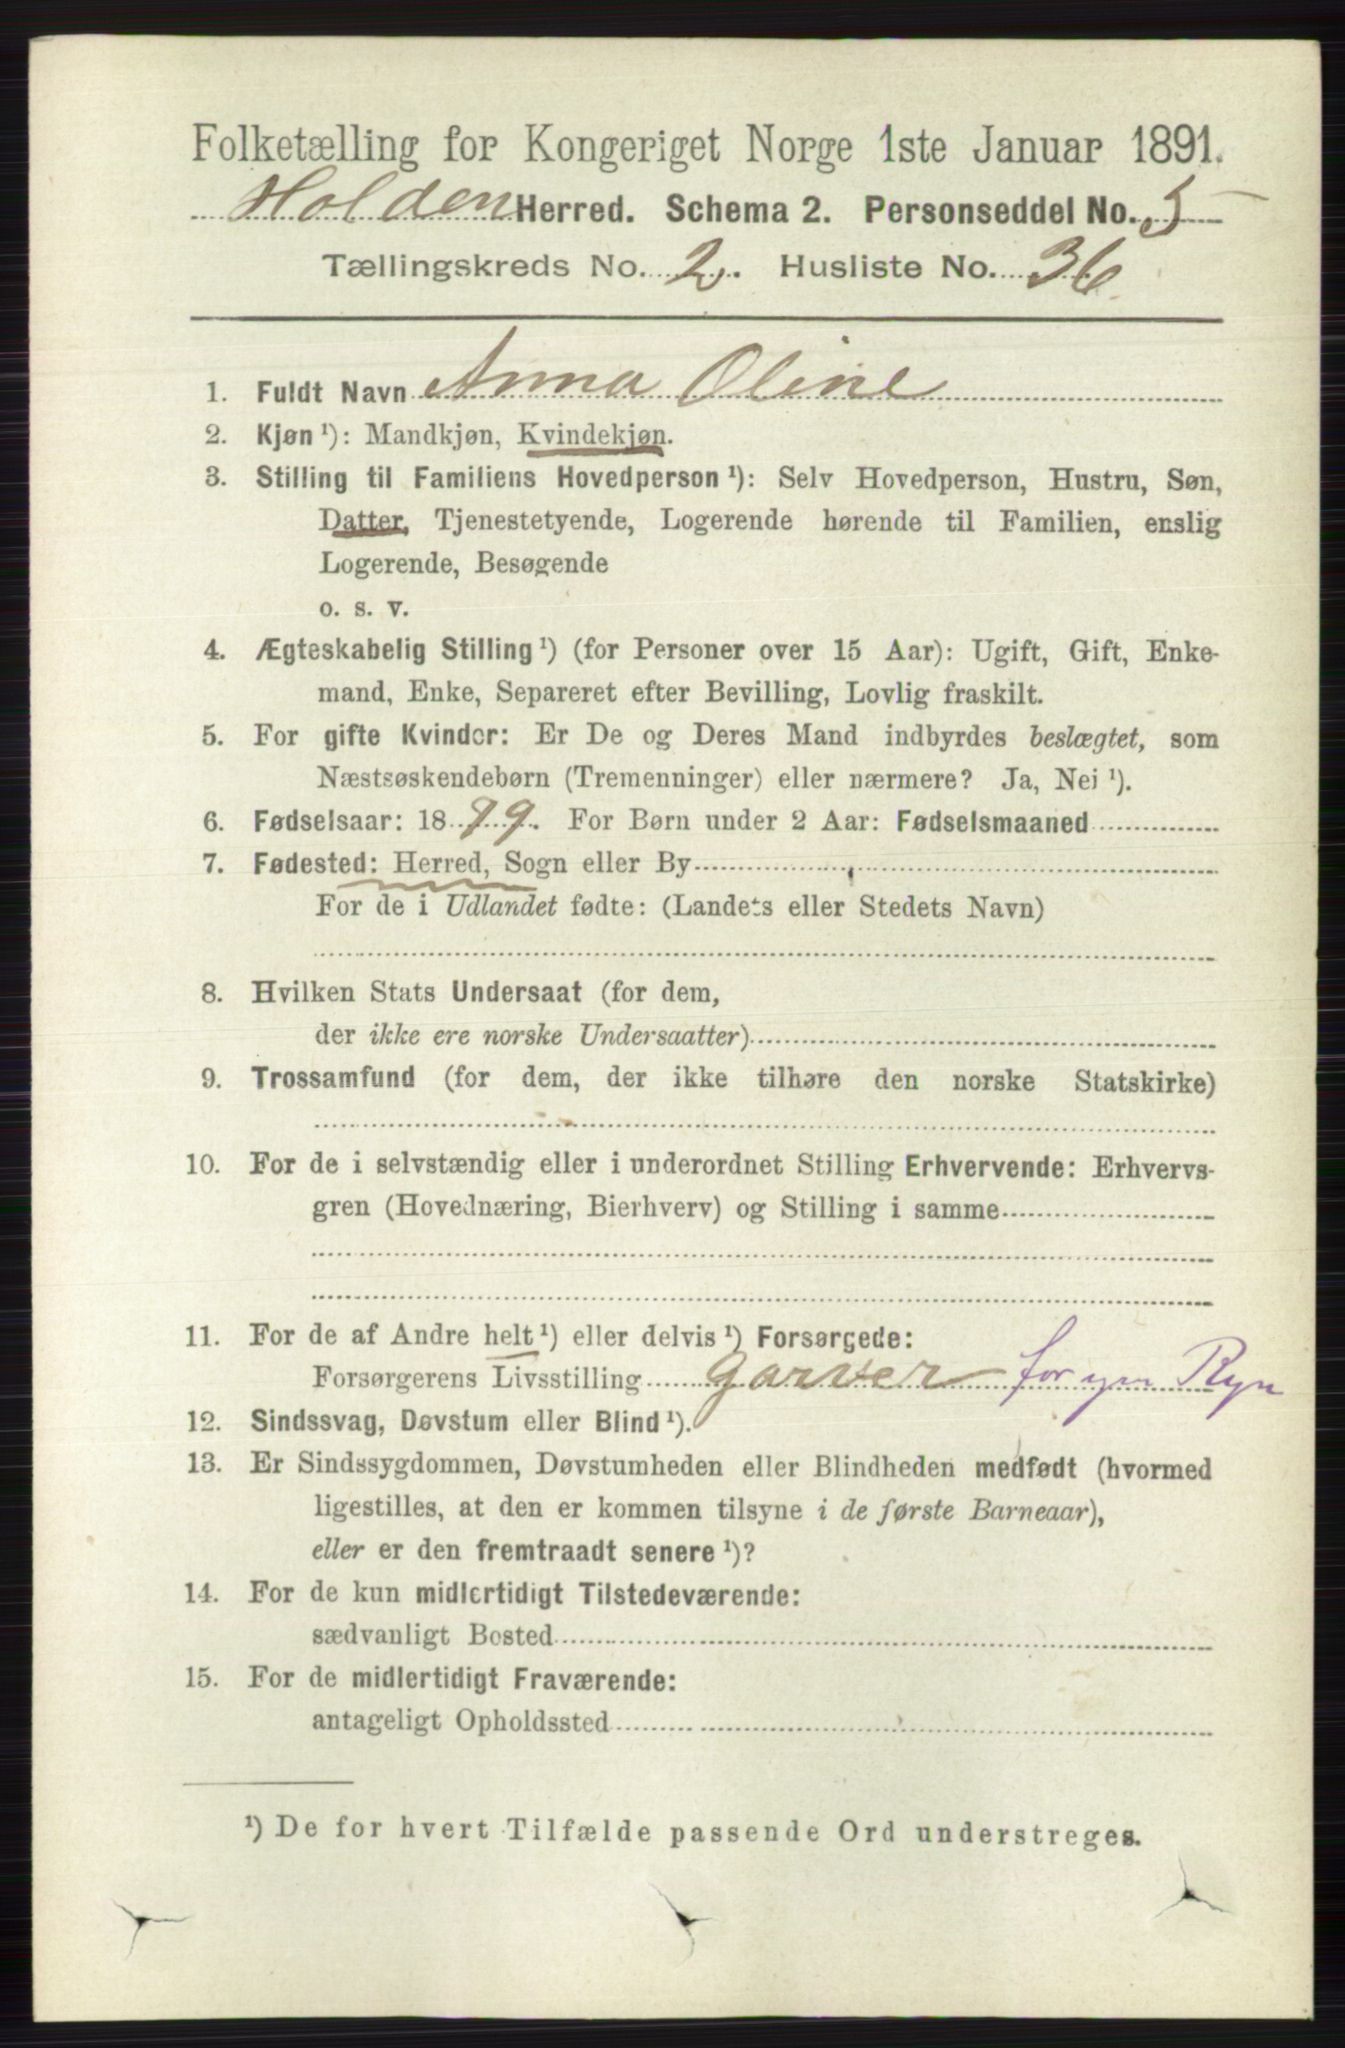 Folketælling for Kongeriget Norge 1ste Januar 1891.
Holden Herred. Schema 2. Personseddel No. 5
Tællingskreds No. 2. Husliste No. 36
1. Fuldt Navn Anna Oline
2. Kjøn ¹): Mandkjøn, Kvindekjøn.
3. Stilling til Familiens Hovedperson ¹): Selv Hovedperson, Hustru, Søn,
Datter, Tjenestetyende, Logerende hørende til Familien, enslig
Logerende, Besøgende
o. s. v.
4. Ægteskabelig Stilling ¹) (for Personer over 15 Aar): Ugift, Gift, Enke-
mand, Enke, Separeret efter Bevilling, Lovlig fraskilt.
5. For gifte Kvinder: Er De og Deres Mand indbyrdes beslægtet, som
Næstsøskendebørn (Tremenninger) eller nærmere? Ja, Nei ¹).
6. Fødselsaar: 1879. For Børn under 2 Aar: Fødselsmaaned
7. Fødested: Herred, Sogn eller By
For de i Udlandet fødte: (Landets eller Stedets Navn)
8. Hvilken Stats Undersaat (for dem,
der ikke ere norske Undersaatter)
9. Trossamfund (for dem, der ikke tilhøre den norske Statskirke)
10. For de i selvstændig eller i underordnet Stilling Erhvervende: Erhvervs-
gren (Hovednæring, Bierhverv) og Stilling i samme
11. For de af Andre helt ¹) eller delvis ¹) Forsørgede:
Forsørgerens Livsstilling Garver for
12. Sindssvag, Døvstum eller Blind ¹).
13. Er Sindssygdommen, Døvstumheden eller Blindheden medfødt (hvormed
ligestilles, at den er kommen tilsyne i de første Barneaar),
eller er den fremtraadt senere ¹)?
14. For de kun midlertidigt Tilstedeværende:
sædvanligt Bosted
15. For de midlertidigt Fraværende:
antageligt Opholdssted
¹) De for hvert Tilfælde passende Ord understreges.